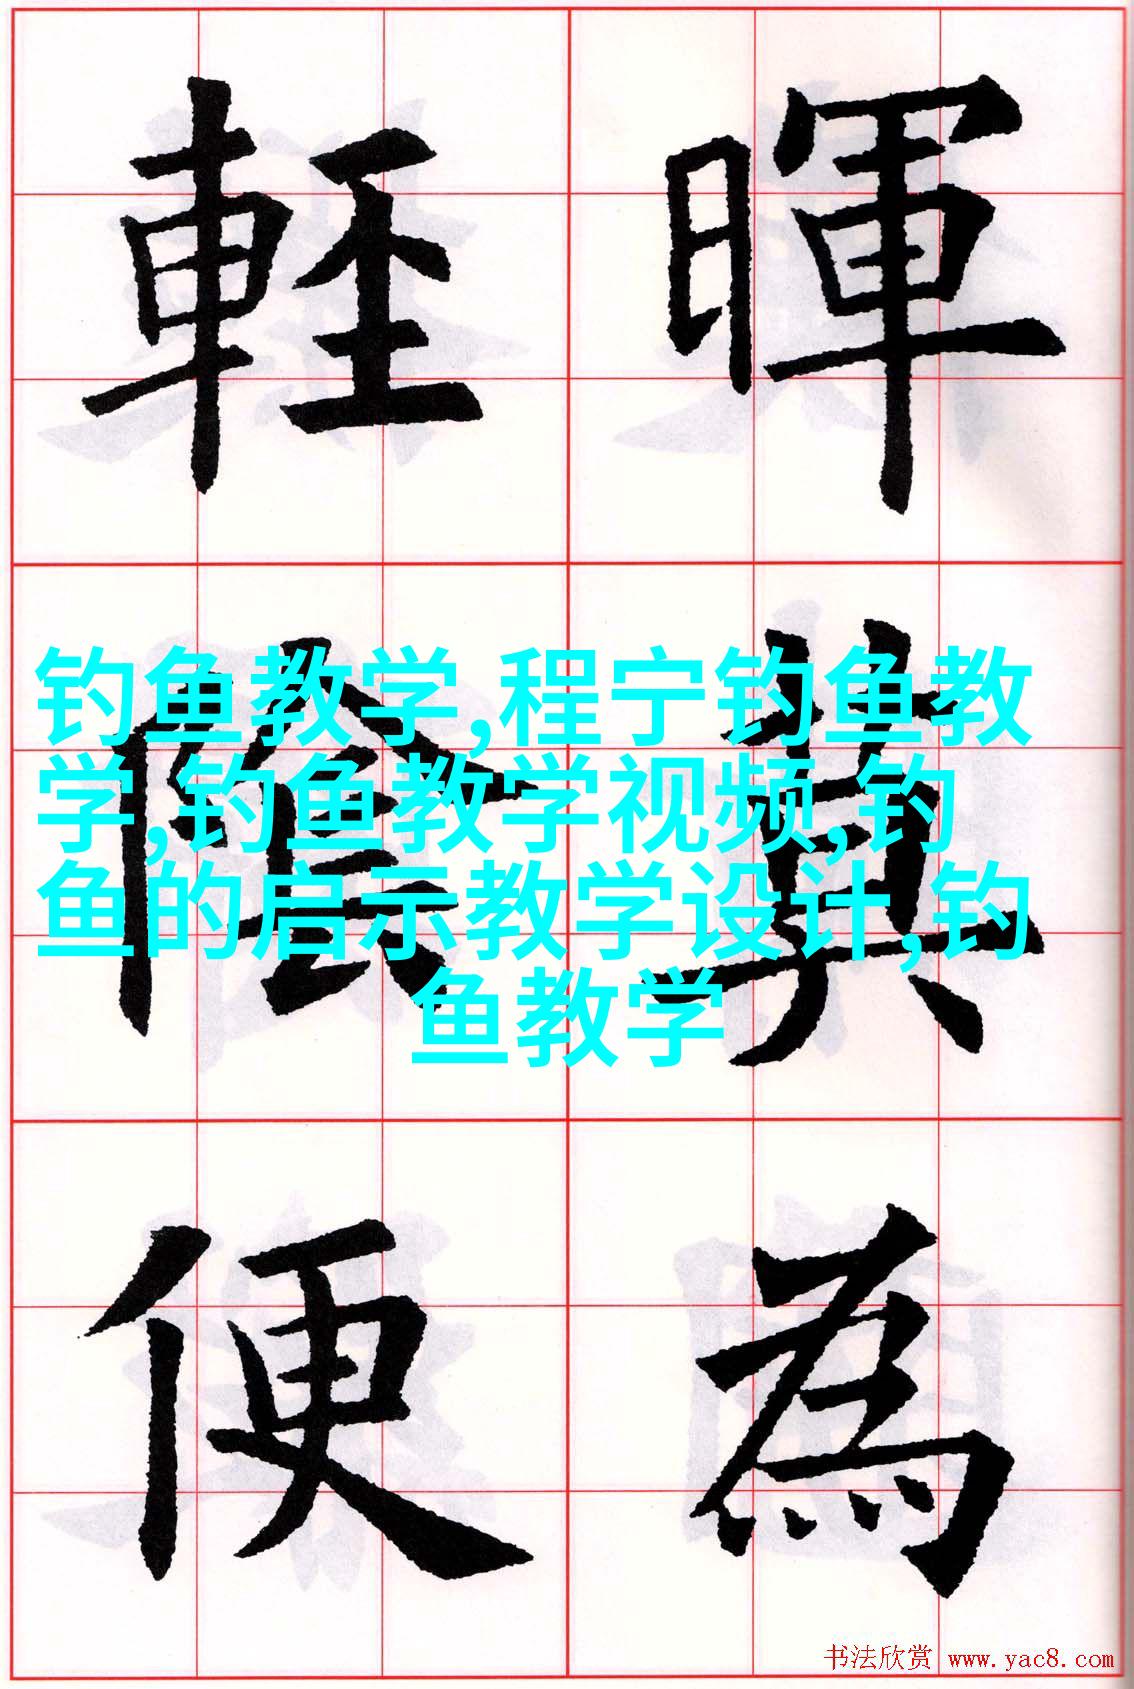 暉莫為
輕陰便
钓鱼教学,程宁钓鱼教
学,钓鱼教学视频,钓
鱼的启示教学设计,钓
鱼教学
书法欣赏 www.yac8.com